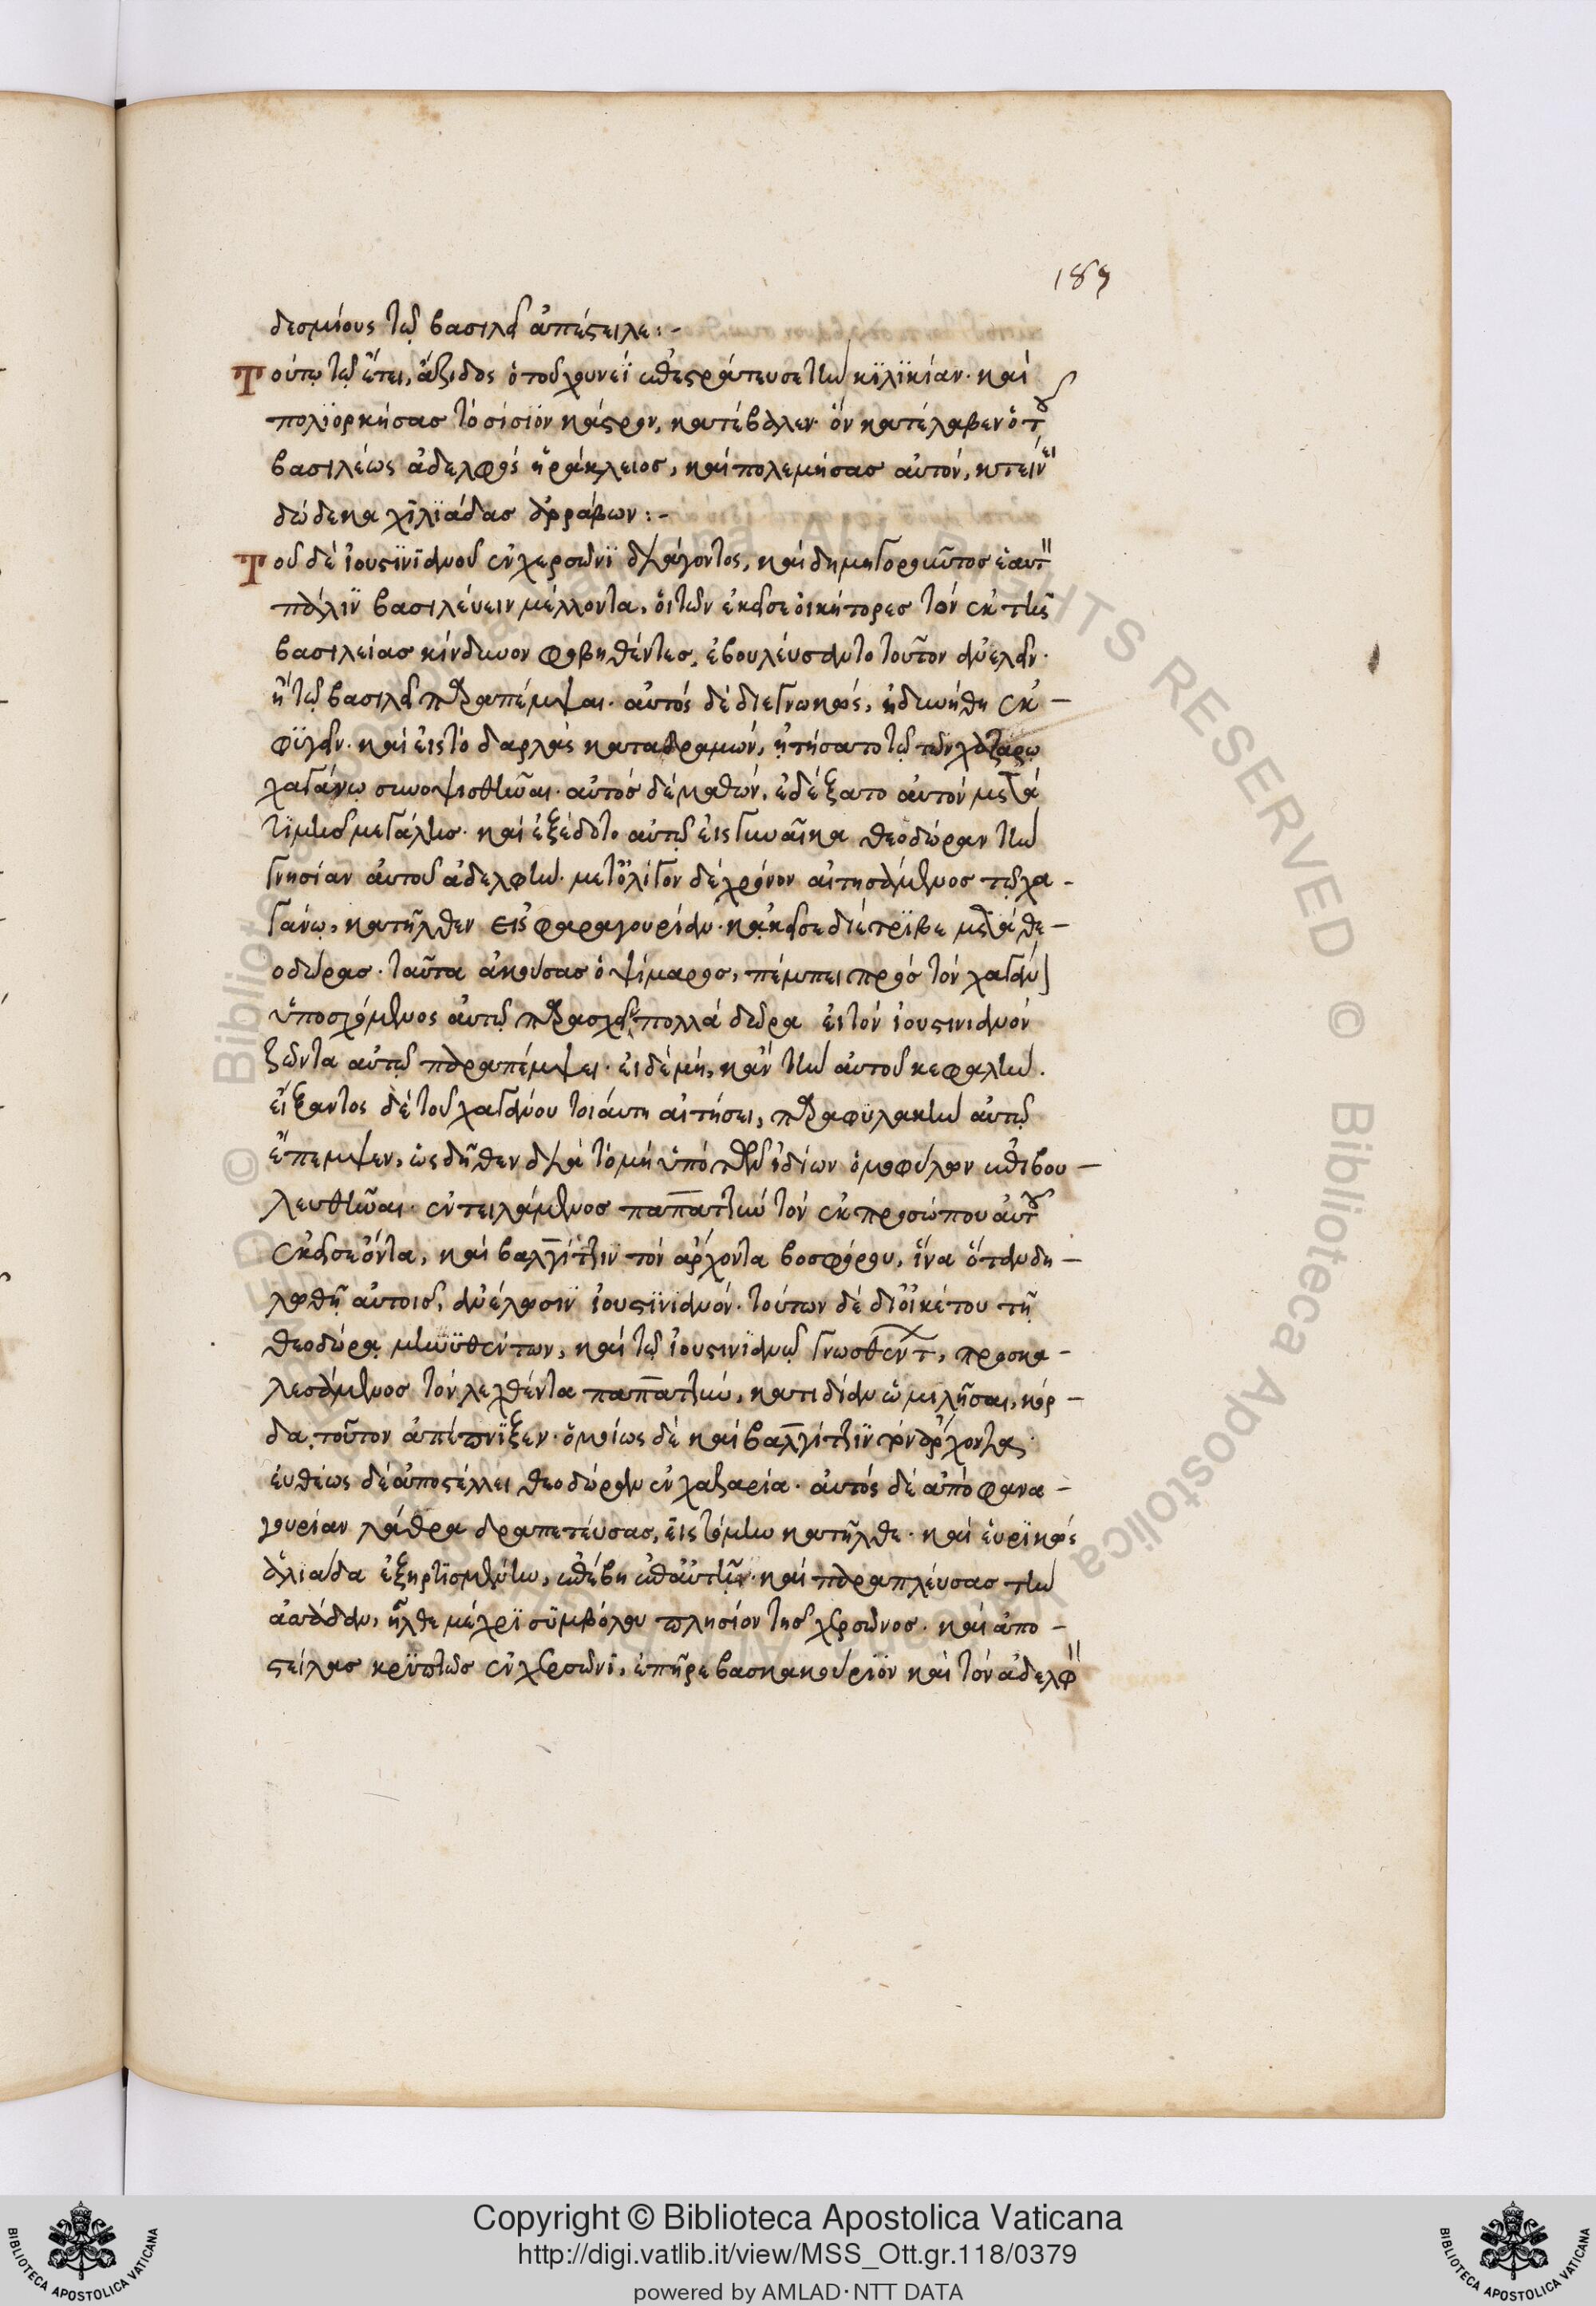 189
δεσμίους τῷ βασιλεῖ ἀπέστειλε :-
Τούτῳ τῷ ἔτει, ἄζιδος ὁ τοῦ χουνεῒ ἐπεστράτευσε τὴν κϊλϊκίαν· καὶ
πολϊορκήσας τὸ σίσϊὸν κάστρον, κατέβαλεν· ὃν κατέλαβεν ὁ τοῦ
βασιλέως ἀδελφὸς ἡράκλειος, καὶ πολεμήσας αὐτὸν, κτείνει
δώδεκα χῒλϊάδας ἀρράβων :-
Τοῦ δὲ ἰουστϊνϊανοῦ ἐν χερσῶνϊ διάγοντος, καὶ δημηγοροῦντος ἑαυτὸν
πάλϊν βασιλεύειν μέλλοντα, οἱ τῶν ἐκεῖσε οἰκήτορες τὸν ἐκ τῆς
βασιλείας κίνδυνον φοβηθέντες, ἐβουλεύσαντο τοῦτον ἀνελεῖν·
ἢ τῷ βασιλεῖ παραπέμψαι· αὐτὸς δὲ διεγνωκὼς, ἠδυνήθη ἐκ-
φϋγεῖν· καὶ εἰς τὸ δαρλὰς καταδραμὼν, ᾐτήσατο τῷ τῶν χαζάρῳ
χαγάνῳ συνοψισθῆναι· αὐτὸς δὲ μαθὼν, ἐδέξατο αὐτὸν μετὰ
τϊμῆς μεγάλης· καὶ ἐξέδοτο αὐτῷ εἰς γυναῖκα θεοδώραν τὴν
γνησίαν αὐτοῦ ἀδελφὴν· μετ' ὀλίγον δὲ χρόνον αἰτησάμενος τῷ χα-
γάνῳ, κατῆλθεν εἰς φαραγουρίαν· κἀκεῖσε διέτρϊβε μετὰ θε-
οδώρας· ταῦτα ἀκούσας ὁ ἀψίμαρος, πέμπει πρὸς τὸν χαγάν]
ὑποσχόμενος αὐτῷ παρασχεῖν πολλὰ δῶρα εἰ τὸν ἰουστινιανὸν
ζῶντα αὐτῷ παραπέμψει· εἰ δὲ μὴ, κἂν τὴν αὐτοῦ κεφαλὴν.
εἴξαντος δὲ τοῦ χαγάνου τοιαύτῃ αἰτήσει, παραφϋλακὴν αὐτῷ
ἔπεμψεν, ὡς δῆθεν διὰ τὸ μὴ ὑπὸ τῶν ἰδίων ὁμοφύλων ἐπιβου-
λευθῆναι· ἐντειλάμενος παπατζὺν τὸν ἐκ προσώπου αὐτοῦ
ἐκεῖσε ὄντα, καὶ βαλγίτζιν τὸν ἄρχοντα βοσφόρου, ἵνα ὅταν δη-
λωθῇ αὐτοῖς, ἀνέλωσιν ἰουστϊνϊανόν· τούτων δὲ δι' οἰκέτου τῇ
θεοδώρᾳ μηνϋθέντων, καὶ τῷ ἰουστινϊανῷ γνωσθέντων, προσκα-
λεσάμενος τὸν λεχθέντα παπατζὺν, κατιδίαν ὡμιλῆσαι, κόρ-
δα τοῦτον ἀπέπνϊξεν· ὁμοίως δὲ καὶ βαλγίτζϊν τὸν ἄρχοντα·
εὐθέως δὲ ἀποστέλλει θεοδώραν ἐν χαζαρίᾳ· αὐτὸς δὲ ἀπὸ φανα-
γουρίαν λάθρα δραπετεύσας, εἰς τόμην κατῆλθε· καὶ εὑρϊκὼς
ἁλιάδα ἐξηρτϊσμένην, ἐπέβη ἐπ' αὐτὴν· καὶ παραπλεύσας τὴν
ἀσάδαν, ἦλθε μέχρϊ σϋμβόλου πλησίον τῆς χερσῶνος· καὶ ἀπο-
στείλας κρϋπτῶς ἐν χερσῶνϊ, ἐπῆρε βασκακούριϊον καὶ τὸν ἀδελφὸν
Copyright © Biblioteca Apostolica Vaticana
http://digi.vatlib.it/view/MSS_Ott.gr.118/0379
powered by AMLAD·NTT DATA